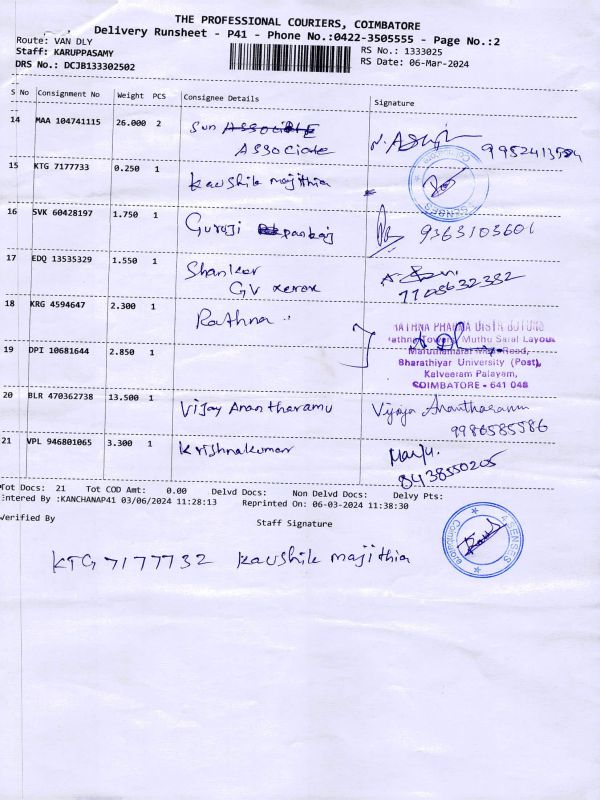 THE PROFESSIONAL COURIERS, COIMBATORE
Delivery Runsheet - P41 - Phone No.:0422-3505555 - Page No.:2
Route: VAN DLY
RS No.: 1333025
Staff: KARUPPASAMY
RS Date: 06-Mar-2024
DRS No.: DCJB133302502
S No Consignment No Weight PCS Consignee Details Signature
14 MAA 104741115 26.000 2 Sun
Associate
9952413584
15 KTG 7177733 0.250 1 Kaushik majithia
16 SVK 60428197 1.750 1 Guruji pankaj 9363103601
17 EDQ 13535329 1.550 1 Shanker
GV xerox
7708632382
18 KRG 4594647 2.300 1 Rathna
RATHNA PHARMA DISTRIBUTORS
Rathna Towers, Muthu Saral Layout
Maruthamalai Main Road,
19 DPI 10681644 2.850 1
Bharathiyar University (Post),
Kalveeram Palayam,
COIMBATORE - 641 046
20 BLR 470362738 13.500 1 Vijay Anantharamu Vijaya Anantharamu
9986585586
21 VPL 946801065 3.300 1 Krishnakumar
8438550205
Tot Docs: 21 Tot COD Amt: 0.00 Delvd Docs: Non Delvd Docs: Delvy Pts:
Entered By :KANCHANAP41 03/06/2024 11:28:13 Reprinted On: 06-03-2024 11:38:30
Verified By
Staff Signature
KTG 7177732 Kaushik majithia